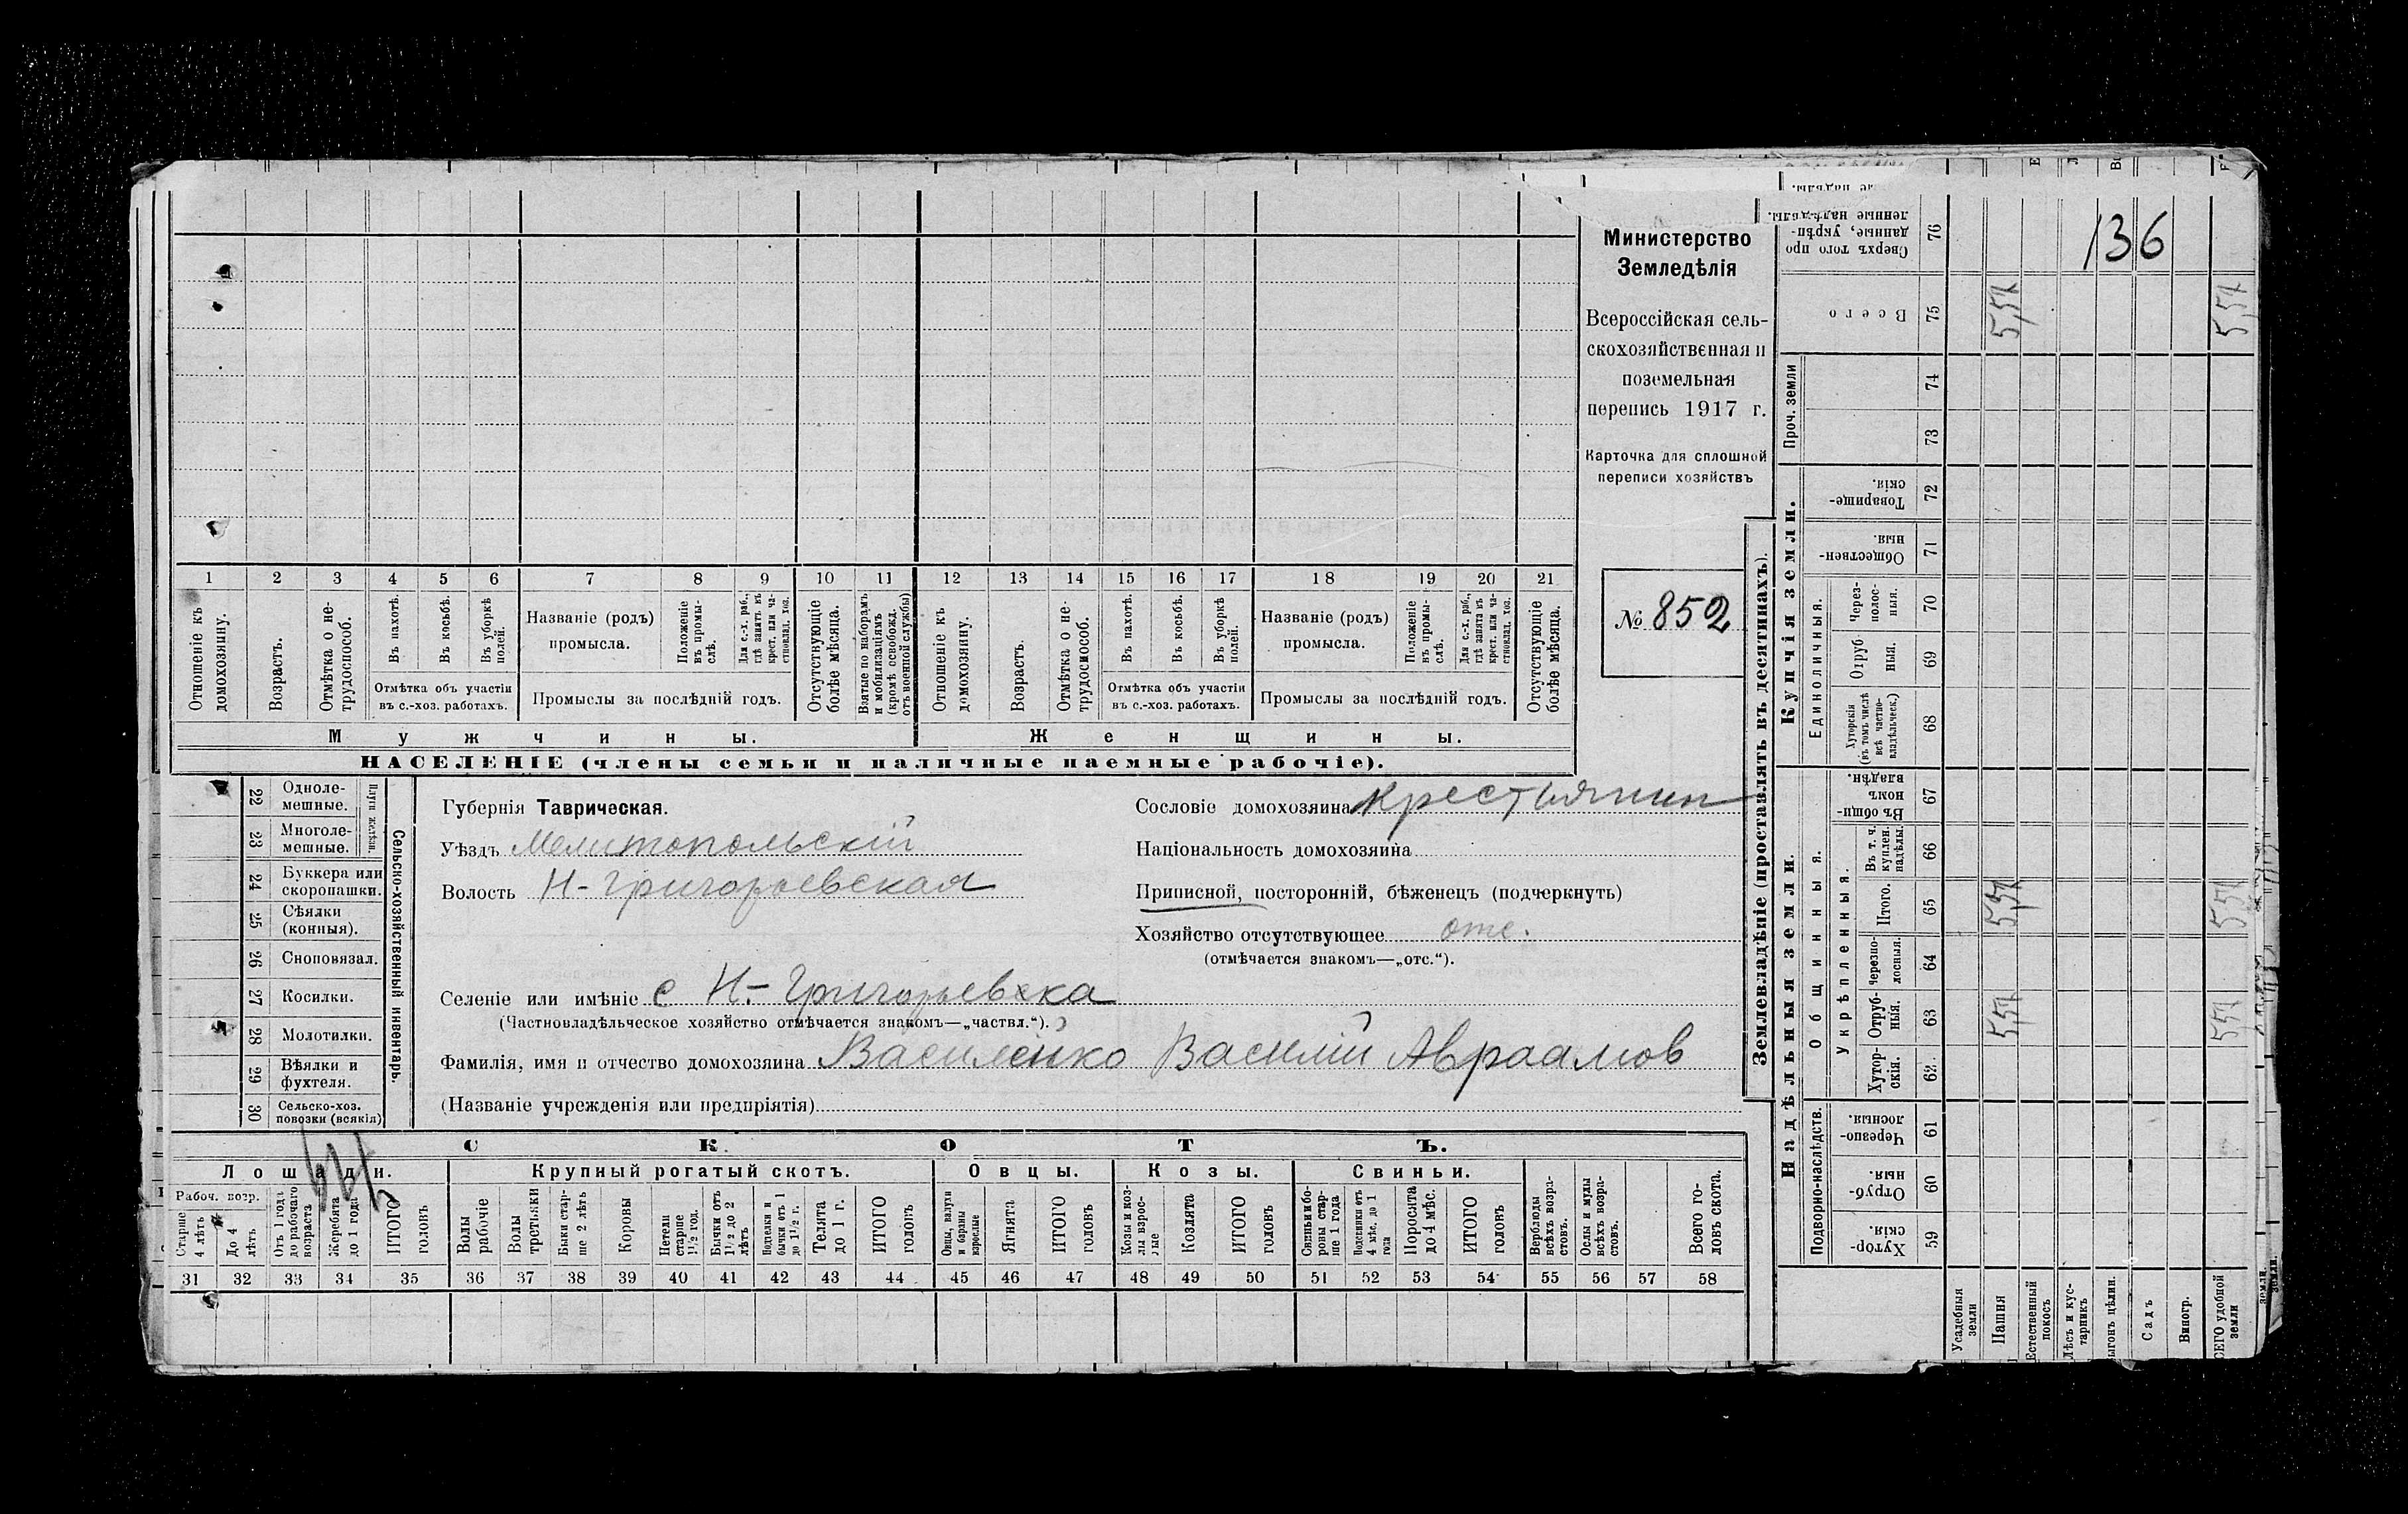 Министерство
Земледѣлія
Всероссійская сель-
скохозяйственная и
поземельная
перепись 1917 г.
Карточка для сплошной
переписи хозяйствъ
№ 852
136
1 2 3 4 5 6 7 8 9 10 11 12 13 14 15 16 17 18 19 20 21
Отношеніе къ домохозяину.
Возрастъ.
Отмѣтка о не-трудоспособ.
Въ пахотѣ.
Въ косьбѣ.
Въ уборкѣ полей.
Названіе (родъ) промысла.
Положеніе въ промы-слѣ.
Для с.-х. раб., гдѣ занятъ въ крест. или ча-стновлад. хоз.
Отсутствующіе болѣе мѣсяца.
Взятые по наборамъ и мобилизаціямъ (кромѣ освобожд. отъ военной службы)
Отношеніе къ домохозяину.
Возрастъ.
Отмѣтка о не-трудоспособ.
Въ пахотѣ.
Въ косьбѣ.
Въ уборкѣ полей.
Названіе (родъ) промысла.
Положеніе въ промы-слѣ.
Для с.-х. раб., гдѣ занята въ крест. или ча-стновлад. хоз.
Отсутствующіе болѣе мѣсяца.
Отмѣтка объ участіи въ с.-хоз. работахъ.
Промыслы за послѣдній годъ.
Отмѣтка объ участіи въ с.-хоз. работахъ.
Промыслы за послѣдній годъ.
Мужчины.
Женщины.
НАСЕЛЕНІЕ (члены семьи и наличные наемные рабочіе).
Сельско-хозяйственный инвентарь.
Плуги желѣзн.
22 Одноле-мешные.
23 Многоле-мешные.
24 Буккера или скоропашки.
25 Сѣялки (конныя).
26 Сноповязал.
27 Косилки.
28 Молотилки.
29 Вѣялки и фухтеля.
30 Сельско-хоз. повозки (всякія)
Губернія Таврическая.
Уѣздъ Мелитопольскій
Волость Н-Григорьевская
Сословіе домохозяина крестьянин
Національность домохозяина
Приписной, посторонній, бѣженецъ (подчеркнуть)
Хозяйство отсутствующее отс.
(отмѣчается знакомъ—„отс.“).
Селеніе или имѣніе с Н.-Григорьевка
(Частновладѣльческое хозяйство отмѣчается знакомъ—„частвл.“).
Фамилія, имя и отчество домохозяина Василенко Василій Авраамов
(Названіе учрежденія или предпріятія)
СКОТЪ.
Лошади. Крупный рогатый скотъ. Овцы. Козы. Свиньи.
Рабоч. возр.
Старше 4 лѣтъ
До 4 лѣтъ
Отъ 1 года до рабочаго возраста
Жеребята до 1 года
ИТОГО головъ
Волы рабочіе
Волы третьяки
Быки стар-ше 2 лѣтъ
Коровы
Нетели старше 1½ год.
Бычки отъ 1½ до 2 лѣтъ
Подтелки и бычки отъ 1 до 1½ г.
Телята до 1 г.
ИТОГО головъ
Овцы, валухи и бараны взрослые
Ягнята
ИТОГО головъ
Козы и коз-лы взрос-лые
Козлята
ИТОГО головъ
Свиньи и бо-ровы стар-ше 1 года
Подсвинки отъ 4 мѣс. до 1 года
Поросята до 4 мѣс.
ИТОГО головъ
Верблюды всѣхъ возра-стовъ.
Ослы и мулы всѣхъ возра-стовъ.
Всего го-ловъ скота.
31 32 33 34 35 36 37 38 39 40 41 42 43 44 45 46 47 48 49 50 51 52 53 54 55 56 57 58
Землевладѣніе (проставлять въ десятинахъ).
Купчія земли.
Надѣльныя земли.
Проч. земли
Единоличныя.
Общинныя.
Укрѣпленныя.
Подворно-наслѣдств.
76 Сверхъ того про данные, укрѣп-ленные надѣлы.
75 Всего 5,57 5,57
74
73
72 Товарище-скія.
71 Обществен-ныя.
70 Через-полос-ныя.
69 Отруб-ныя.
68 Хуторскія (въ томъ числѣ всѣ частно-владѣльческ.)
67 Въ общи-номъ владѣн.
66 Въ т. ч. куплен. надѣлы.
65 Итого. 5,57 5,57
64 Черезпо-лосныя.
63 Отруб-ныя. 5,57 5,57
62 Хутор-скія.
61 Черезпо-лосныя.
60 Отруб-ныя.
59 Хутор-скія.
Усадебныя земли
Пашня
Естественный покосъ
Лѣсъ и кус-тарникъ
ыгонъ цѣлин.
Садъ
Виногр.
СЕГО удобной земли